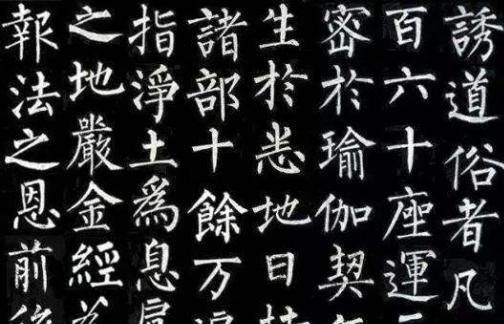 誘道俗者凡
百六十座運
密於瑜伽契
生於悉地日持
諸部十餘万遍
指淨土為息肩
之地嚴金經
報法之恩前後